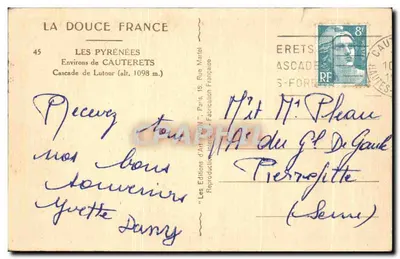 LA DOUCE FRANCE
45
LES PYRÉNÉES
Environs de CAUTERETS
Cascade de Lutour (alt. 1098 m.)
Recevez tous
nos bons
souvenirs
Yvette Dany
Les Editions d'Art
Paris
18, Rue Martel
Fabrication Française
8F
RF
ERETS
ASCADE
S-FORE
CAUT
HAUTES
Mr et Me Pleau
Av du Gl De Gaule
Pierrefitte
(Seine)